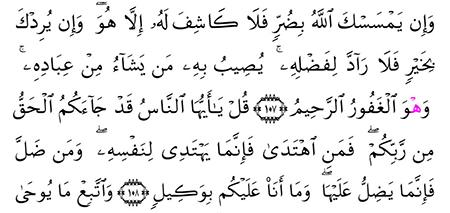 وَإِن يَمْسَسْكَ ٱللَّهُ بِضُرٍّ فَلَا كَاشِفَ لَهُۥٓ إِلَّا هُوَ ۖ وَإِن يُرِدْكَ
بِخَيْرٍ فَلَا رَآدَّ لِفَضْلِهِۦ ۚ يُصِيبُ بِهِۦ مَن يَشَآءُ مِنْ عِبَادِهِۦ ۚ
وَهُوَ ٱلْغَفُورُ ٱلرَّحِيمُ ﴿١٠٧﴾ قُلْ يَٰٓأَيُّهَا ٱلنَّاسُ قَدْ جَآءَكُمُ ٱلْحَقُّ
مِن رَّبِّكُمْ ۖ فَمَنِ ٱهْتَدَىٰ فَإِنَّمَا يَهْتَدِى لِنَفْسِهِۦ ۖ وَمَن ضَلَّ
فَإِنَّمَا يَضِلُّ عَلَيْهَا ۖ وَمَآ أَنَا۠ عَلَيْكُم بِوَكِيلٍ ﴿١٠٨﴾ وَٱتَّبِعْ مَا يُوحَىٰٓ